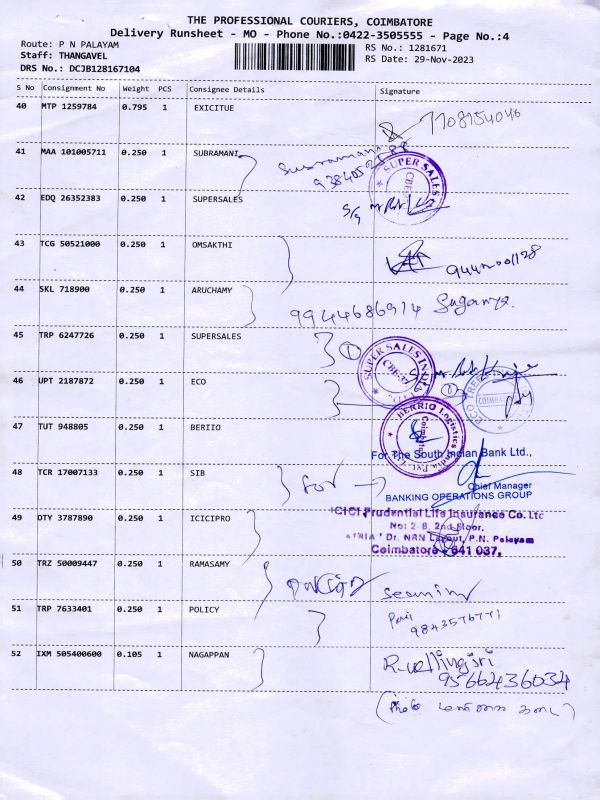 THE PROFESSIONAL COURIERS, COIMBATORE
Delivery Runsheet - MO - Phone No.:0422-3505555 - Page No.:4
Route: P N PALAYAM
RS No.: 1281671
Staff: THANGAVEL
RS Date: 29-Nov-2023
DRS No.: DCJB128167104
S No Consignment No Weight PCS Consignee Details Signature
40 MTP 1259784 0.795 1 EXICITUE
7708154046
41 MAA 101005711 0.250 1 SUBRAMANI
SUPER SALES
42 EDQ 26352383 0.250 1 SUPERSALES
43 TCG 50521000 0.250 1 OMSAKTHI
44 SKL 718900 0.250 1 ARUCHAMY
9944686914 Suganya.
45 TRP 6247726 0.250 1 SUPERSALES
1
SUPER SALES INDIA
46 UPT 2187872 0.250 1 ECO
47 TUT 948805 0.250 1 BERIIO
BERRIO Logistics India Pvt. Coimbatore
For The South Indian Bank Ltd.,
48 TCR 17007133 0.250 1 SIB
for
Chief Manager
BANKING OPERATIONS GROUP
49 OTY 3787890 0.250 1 ICICIPRO
ICICI Prudential Life Insurance Co. Ltd
No: 2-B, 2nd Floor,
Dr. NRN Layout, P.N. Palayam
Coimbatore - 641 037.
50 TRZ 50009447 0.250 1 RAMASAMY
51 TRP 7633401 0.250 1 POLICY
9843576771
52 IXM 505400600 0.105 1 NAGAPPAN
9566436034